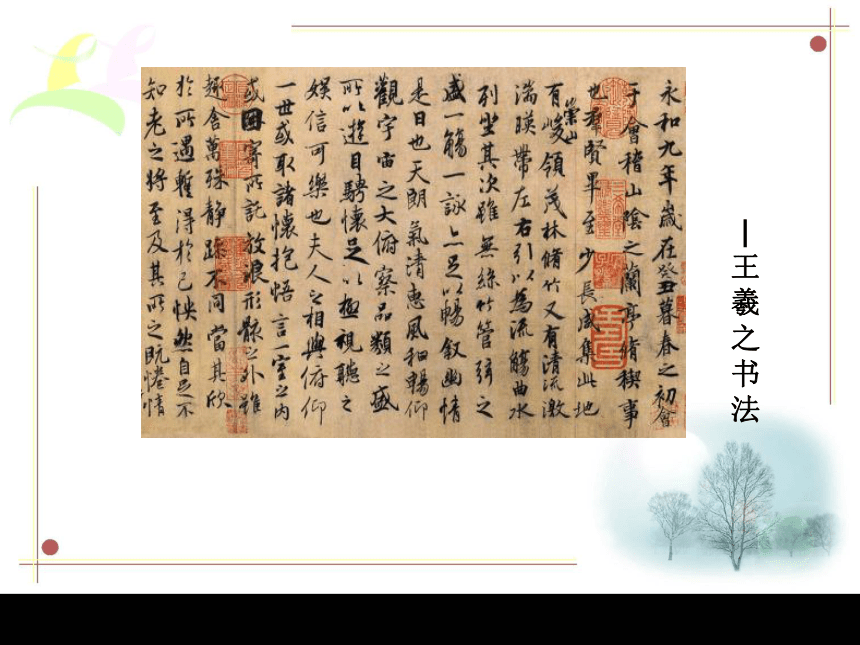 永和九年歲在癸丑暮春之初會
于會稽山陰之蘭亭脩稧事
也羣賢畢至少長咸集此地
有崇山峻領茂林脩竹又有清流激
湍暎帶左右引以為流觴曲水
列坐其次雖無絲竹管弦之
盛一觴一詠亦足以暢叙幽情
是日也天朗氣清惠風和暢仰
觀宇宙之大俯察品類之盛
所以遊目騁懷足以極視聽之
娛信可樂也夫人之相與俯仰
一世或取諸懷抱悟言一室之內
或因寄所託放浪形骸之外雖
趣舍萬殊静躁不同當其欣
於所遇暫得於己怏然自足不
知老之將至及其所之既惓情
—王羲之书法